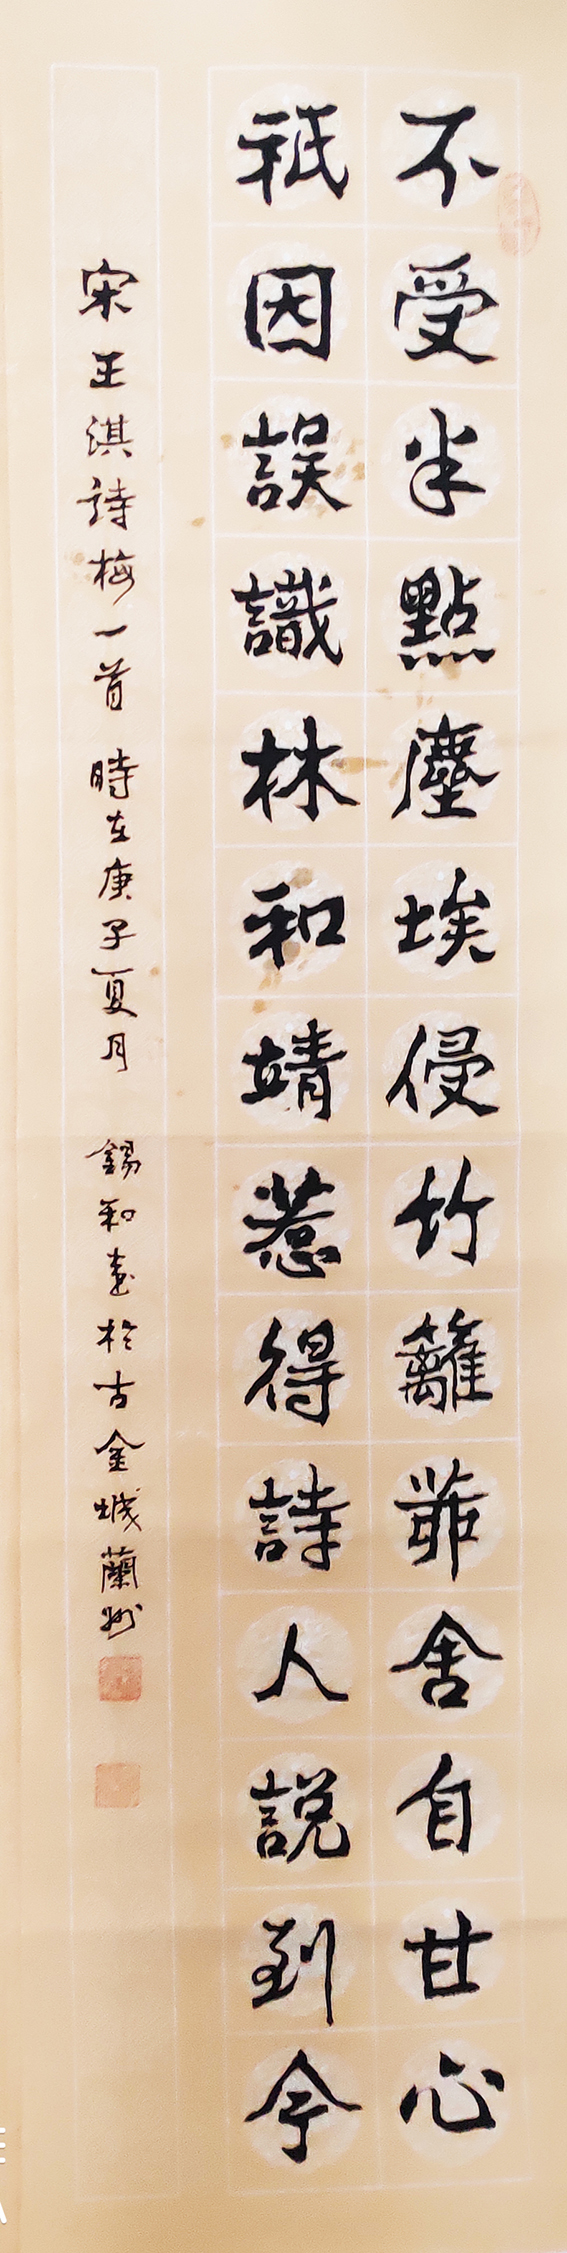 不受半點塵埃侵竹籬茆舍自甘心
祇因誤識林和靖惹得詩人說到今
宋王淇詩梅一首 時在庚子夏月 錫和書於古金城蘭州